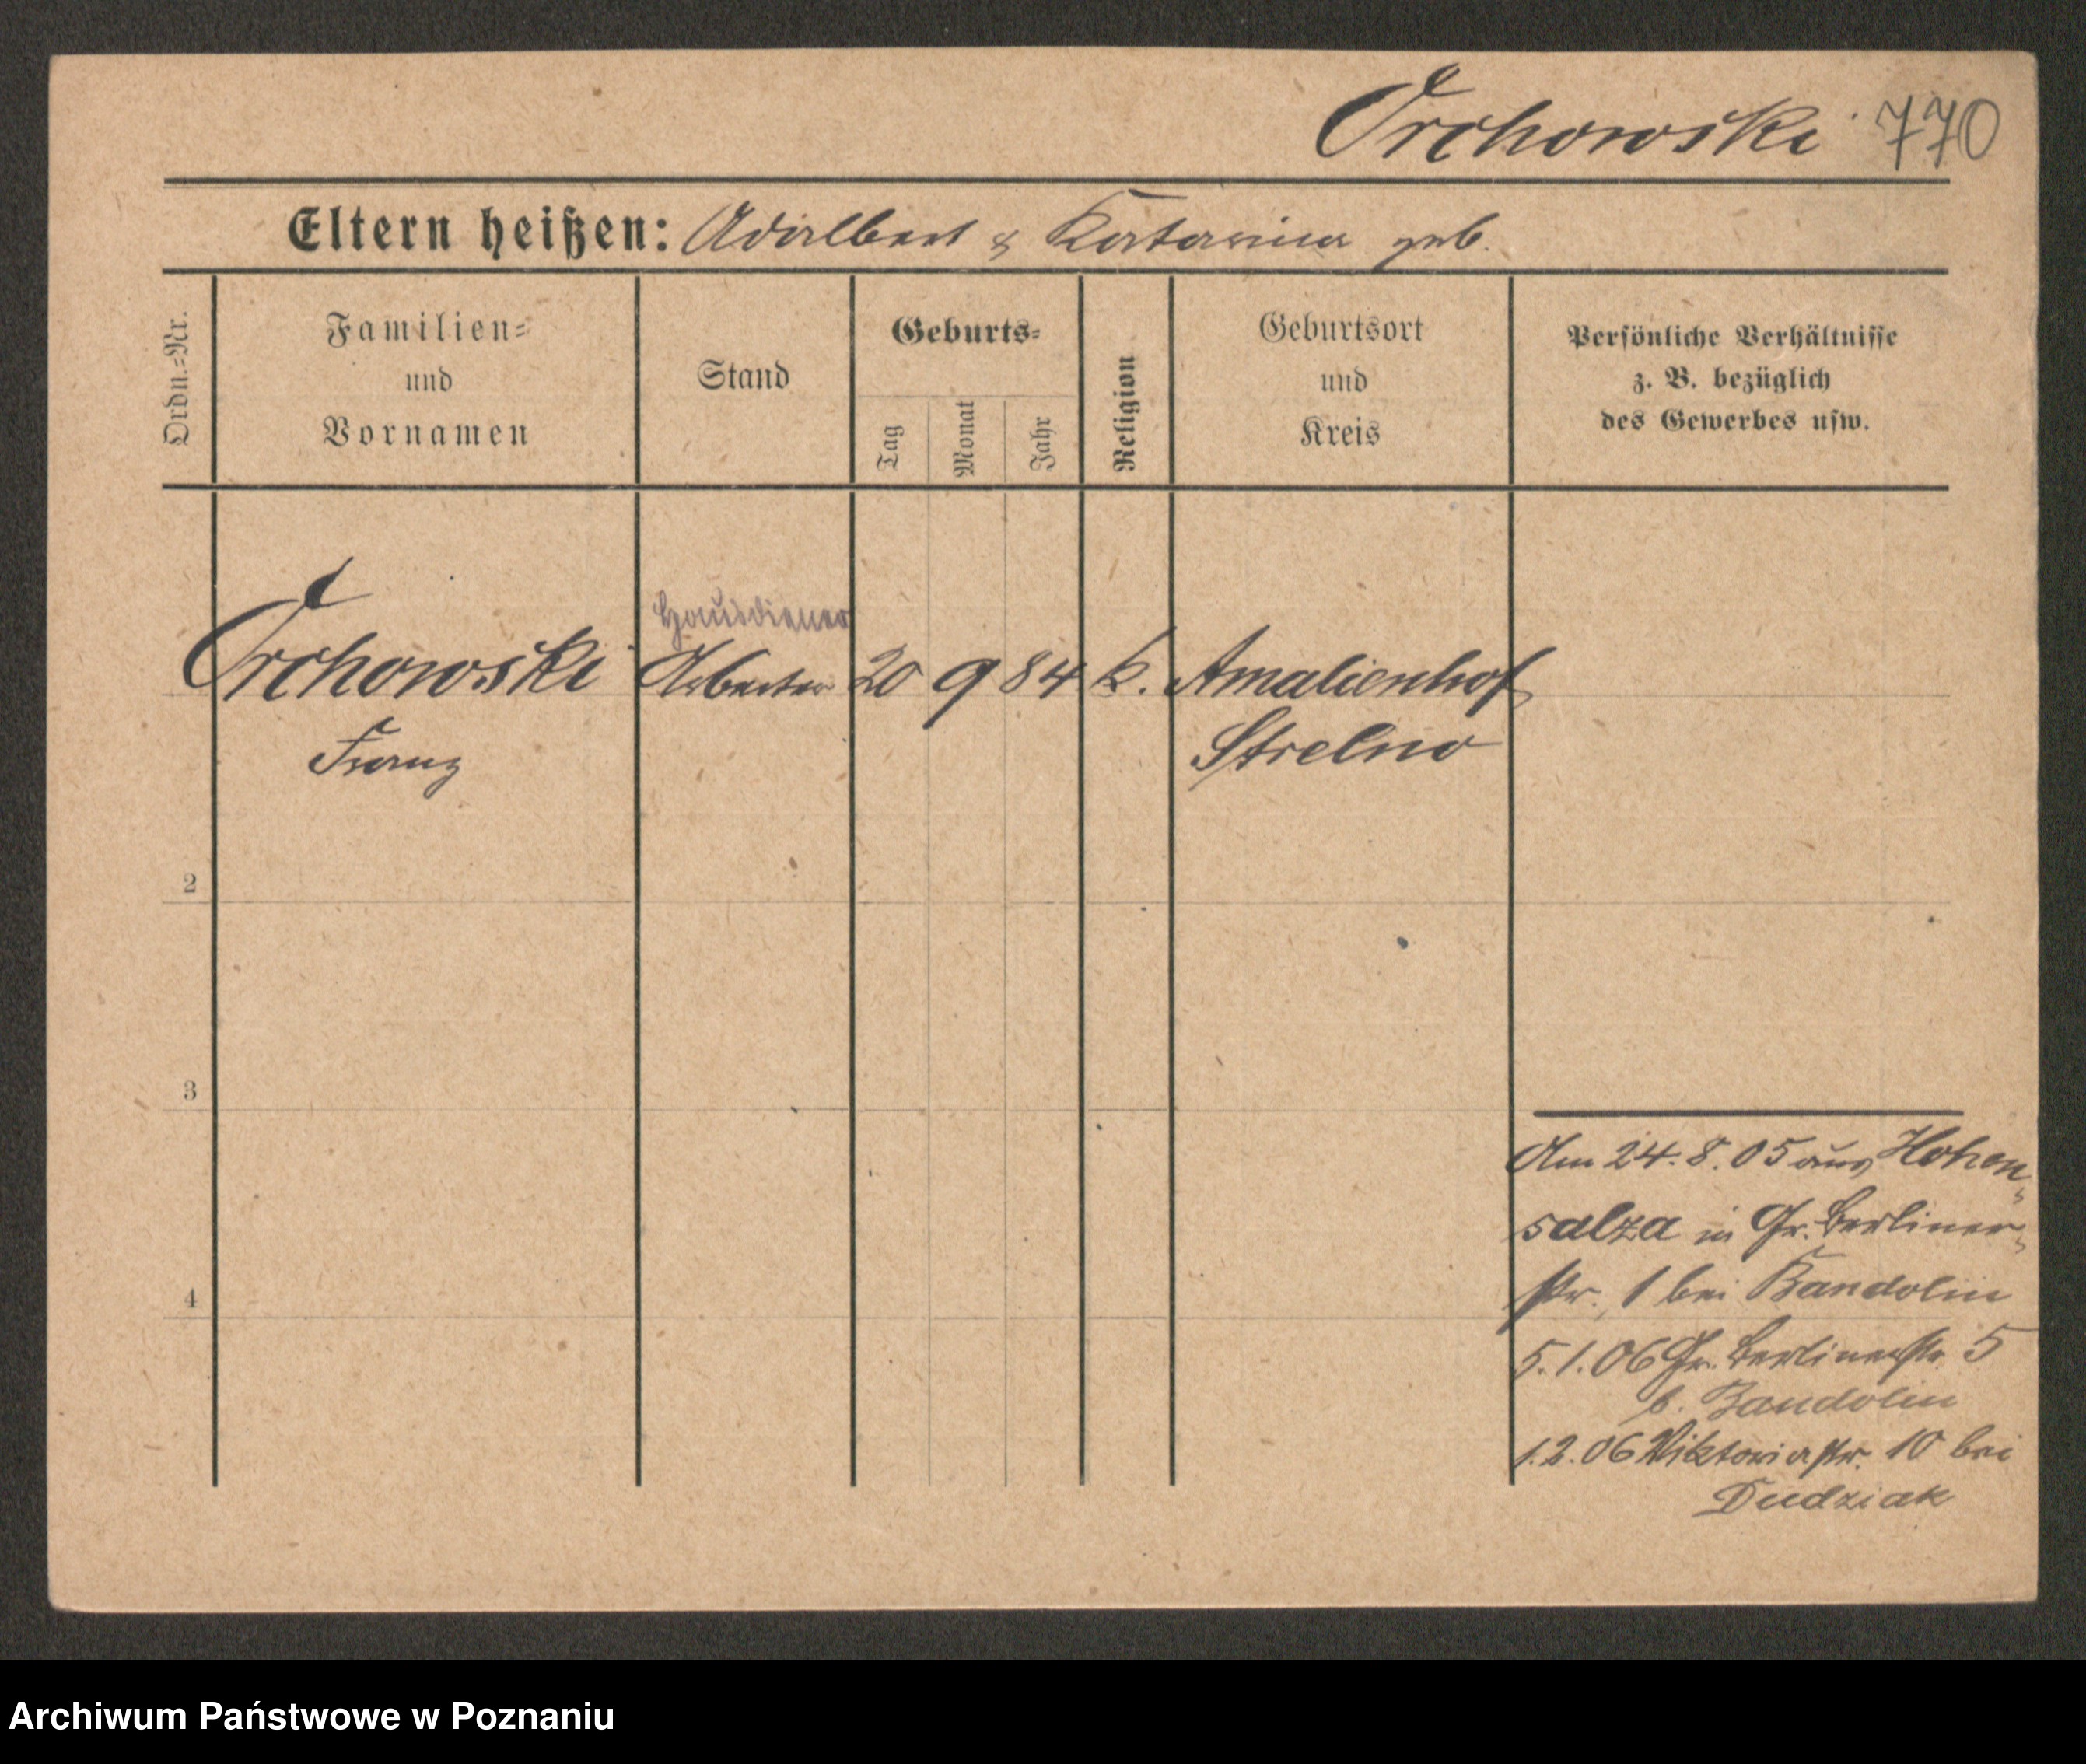 Orchowski 770
Eltern heißen: Adalbert & Katarina geb.
Ordn.=Nr.
Familien=
und
Vornamen
Stand
Geburts=
Tag
Monat
Jahr
Religion
Geburtsort
und
Kreis
Persönliche Verhältnisse
z. B. bezüglich
des Gewerbes usw.
Hausdiener
Orchowski Arbeiter 20 9 84 k. Amalienhof
Franz Strelno
2
3
4
Am 24.8.05 aus Hohen-
salza in Gr. Berliner-
str. 1 bei Bandolin
5.1.06 Gr. Berlinerstr. 5
b. Bandolin
1.2.06 Viktoriastr. 10 bei
Dudziak
Archiwum Państwowe w Poznaniu